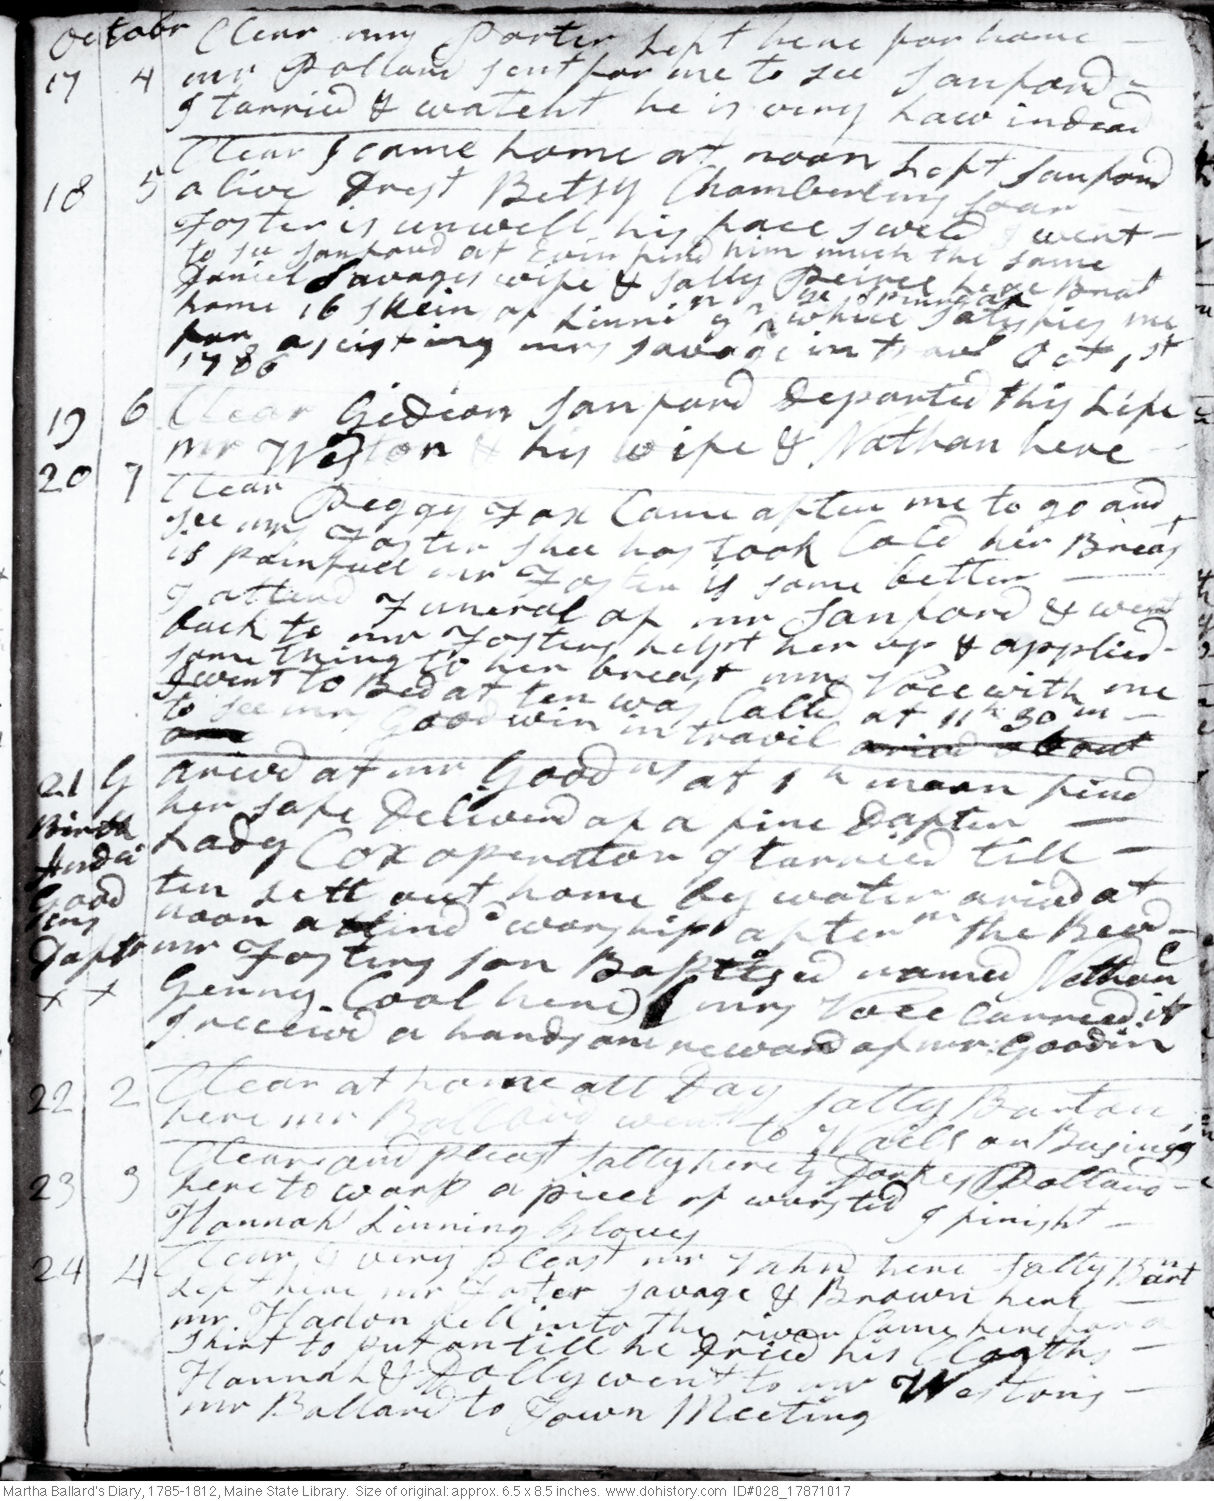 Octobr Clear mrs Porter Left here for home
17 4 mr Pollard sent for me to see Sanford
I tarried & watcht he is very Law indead
18 5 Clear I came home at noon Left Sanford
alive Drest Betsy Chamberlins
Foster is unwell his face sweld I went
to see Sanford at Evin find him much the same
Daniel Savages wife & Sally Peirce here Brot
home 16 skein of Linning yn she spun
which satisfies me
for asisting mrs Savage in travil Oct 1st
1786
19 6 Clear Gideon Sanford Departed this Life
mr Weston & his wife & Nathan here
20 7 Clear Peggy Fox Came after me to go and
see mrs Foster shee has took Cold her Breast
is painfull mr Foster is some better
I attend Funeral of mr Sanford & went
back to mr Fosters helpt her up & applied
some thing to her breast mrs Voce with me
I went to Bed at ten was Calld at 11 h 30 m
to see mrs Goodwin in travil arivd about
21 G arivd at mr Goodns at 1 h morn find
Birth her safe Delivered of a fine Dafter
Lady Cox operator I tarried till
Good ten sett out home by water arivd at
ins noon attind worship after nn the Revd
Dafter mr Fosters son Baptised named Nathan
x x Genny Cool here mrs Voce Carried it
I receivd a handsome reward of mr Goodin
22 2 Clear at home all Day Sally Burton
here mr Ballard went to Wails on Business
23 3 Clear and pleast Sally here Dorkis Pollard
here to warp a piece of worsted I finisht
Hannah Linning Gloves
24 4 Clear & very pleast mr Vahn here Sally Burtn
Left here mr Foster Savage & Brown here
mr fell into the river Came here for a
shirt to put on till he Dried his Cloaths
Hannah & Dolly went to mr Westons
mr Ballard to Town Meeting
Martha Ballard's Diary, 1785-1812, Maine State Library. Size of original: approx. 6.5 x 8.5 inches. www.dohistory.com ID#028_17871017